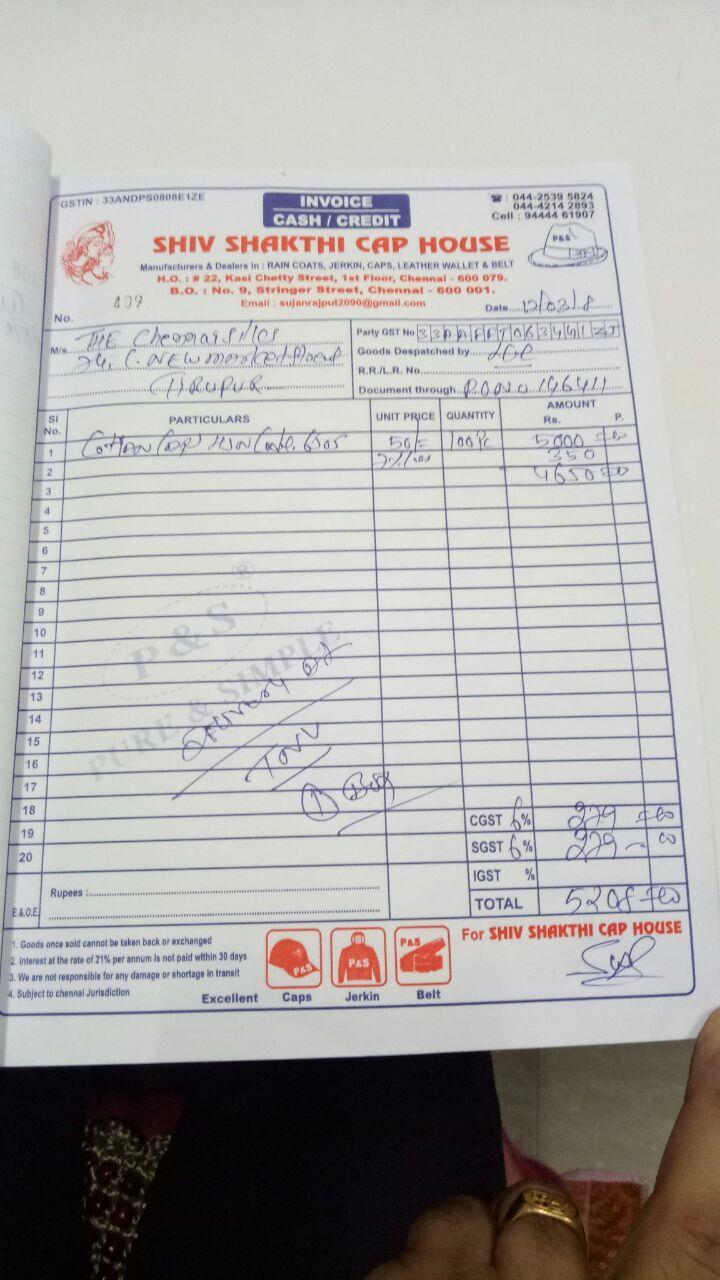 GSTIN : 33ANDPS0808E1ZE
INVOICE
CASH / CREDIT
☎ : 044-2539 5824
044-4214 2893
Cell : 94444 61907
SHIV SHAKTHI CAP HOUSE
P&S
Manufacturers & Dealers in : RAIN COATS, JERKIN, CAPS, LEATHER WALLET & BELT
H.O. : # 22, Kasi Chetty Street, 1st Floor, Chennai - 600 079.
B.O. : No. 9, Stringer Street, Chennai - 600 001.
Email : sujanrajput2090@gmail.com
No. 409
Date 12/03/8
M/s THE Chennai Silks
24, C. NEW market Street
TIRUPUR
Party GST No 33AAFFT063441ZJ
Goods Despatched by
R.R./L.R. No
Document through P.O NO 146411
Sl No. PARTICULARS UNIT PRICE QUANTITY AMOUNT Rs. P.
1 Cotton Cap HSN Code 6505 50/= 100 Pc 5000 =00
7% 350
2 4650 =00
3
4
5
6
7
8
9
10
11
12
13
14
15
16
17
18
19
20
P & S ®
PURE & SIMPLE
Delivery at
① Box
CGST 6% 279 =00
SGST 6% 279 - 00
IGST %
TOTAL 5208 =00
Rupees :
E.&O.E.
1. Goods once sold cannot be taken back or exchanged
2. Interest at the rate of 21% per annum is not paid within 30 days
3. We are not responsible for any damage or shortage in transit
4. Subject to chennai Jurisdiction
P&S
P&S
P&S
Excellent Caps Jerkin Belt
For SHIV SHAKTHI CAP HOUSE